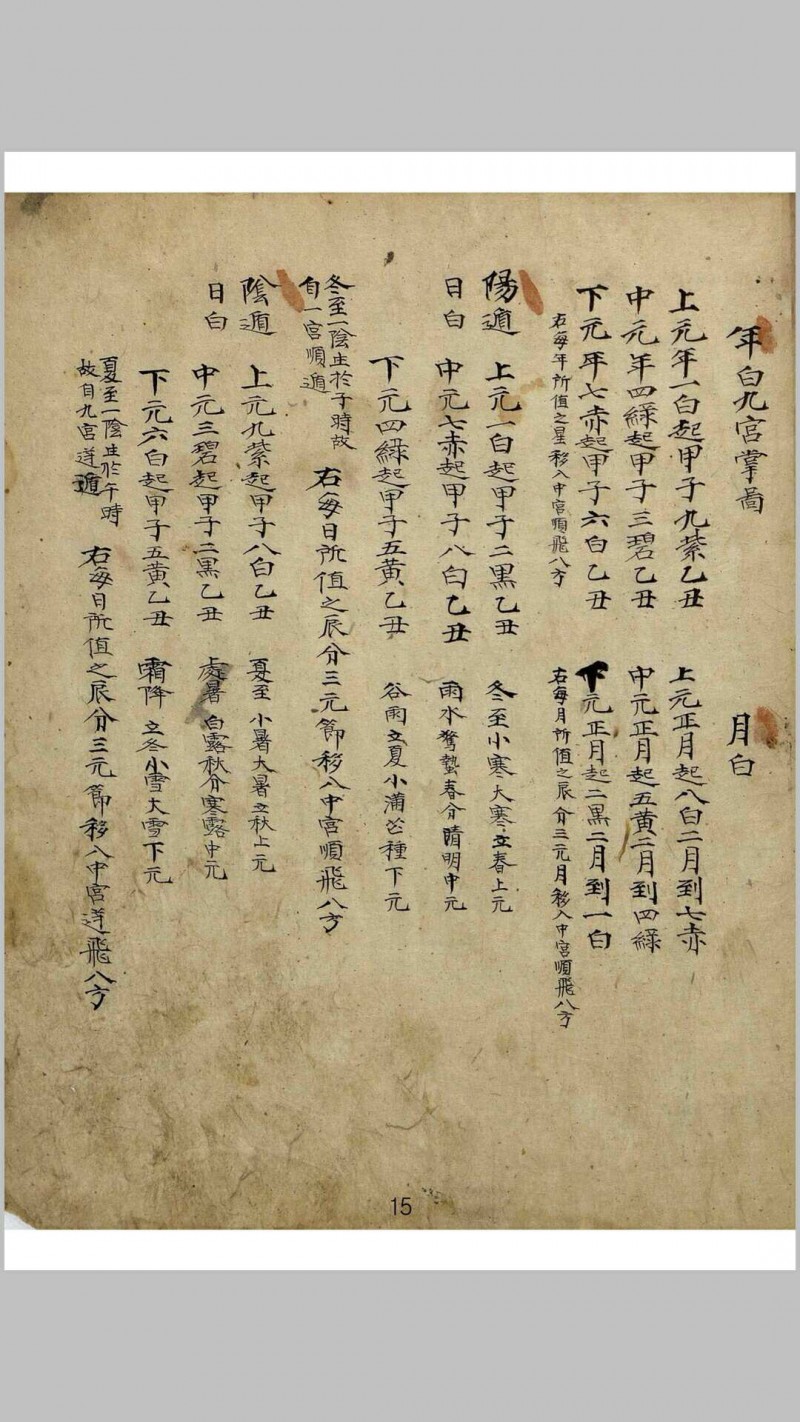 年白九宮掌啚
月白
上元年一白起甲子九紫乙丑
上元正月起八白二月到七赤
中元年四綠起甲子三碧乙丑
中元正月起五黄二月到四綠
下元年七赤起甲子六白乙丑
下元正月起二黒二月到一白
右每年所值之星移入中宮順飛八方
右每月所值之辰分三元月移入中宮順飛八方
陽遁
上元一白起甲子二黒乙丑
冬至小寒大寒立春上元
日白
中元七赤起甲子八白乙丑
雨水驚蟄春分晴明中元
下元四綠起甲子五黄乙丑
谷雨立夏小滿芒種下元
冬至一陰生於子時故
自一宮順遁
右每日所值之辰分三元節移入中宮順飛八方
陰遁
上元九紫起甲子八白乙丑
夏至小暑大暑立秋上元
日白
中元三碧起甲子二黒乙丑
處暑白露秋分寒露中元
下元六白起甲子五黄乙丑
霜降立冬小雪大雪下元
夏至一陰生於午時
故自九宮逆遁
右每日所值之辰分三元節移入中宮逆飛八方
15